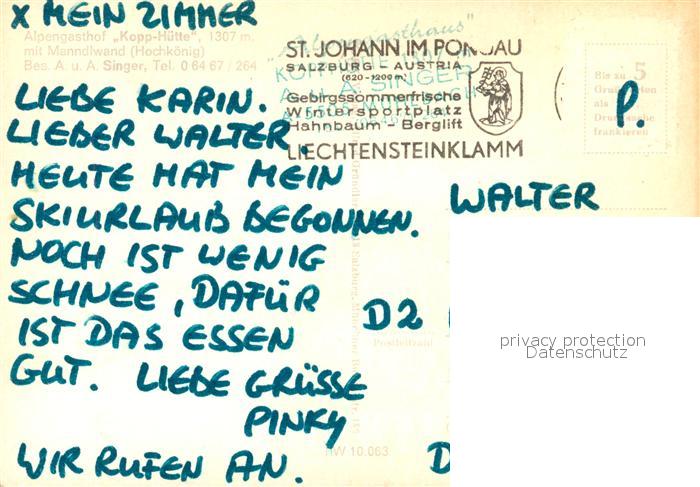 X MEIN ZIMMER
Alpengasthof „Kopp-Hütte", 1307 m,
mit Manndlwand (Hochkönig)
Bes. A. u. A. Singer, Tel. 0 64 67 / 264
ST. JOHANN IM PONGAU
SALZBURG - AUSTRIA
(620-1200m)
Gebirgssommerfrische
Wintersportplatz
Hahnbaum - Berglift
LIECHTENSTEINKLAMM
A. SINGER
Bis zu 5
als
frankieren
P.
LIEBE KARIN.
LIEBER WALTER.
HEUTE HAT MEIN
SKIURLAUB BEGONNEN.
NOCH IST WENIG
SCHNEE, DAFÜR
IST DAS ESSEN
GUT. LIEBE GRÜSSE
PINKY
WIR RUFEN AN.
WALTER
D2
Postleitzahl
HW 10.063
D
privacy protection
Datenschutz